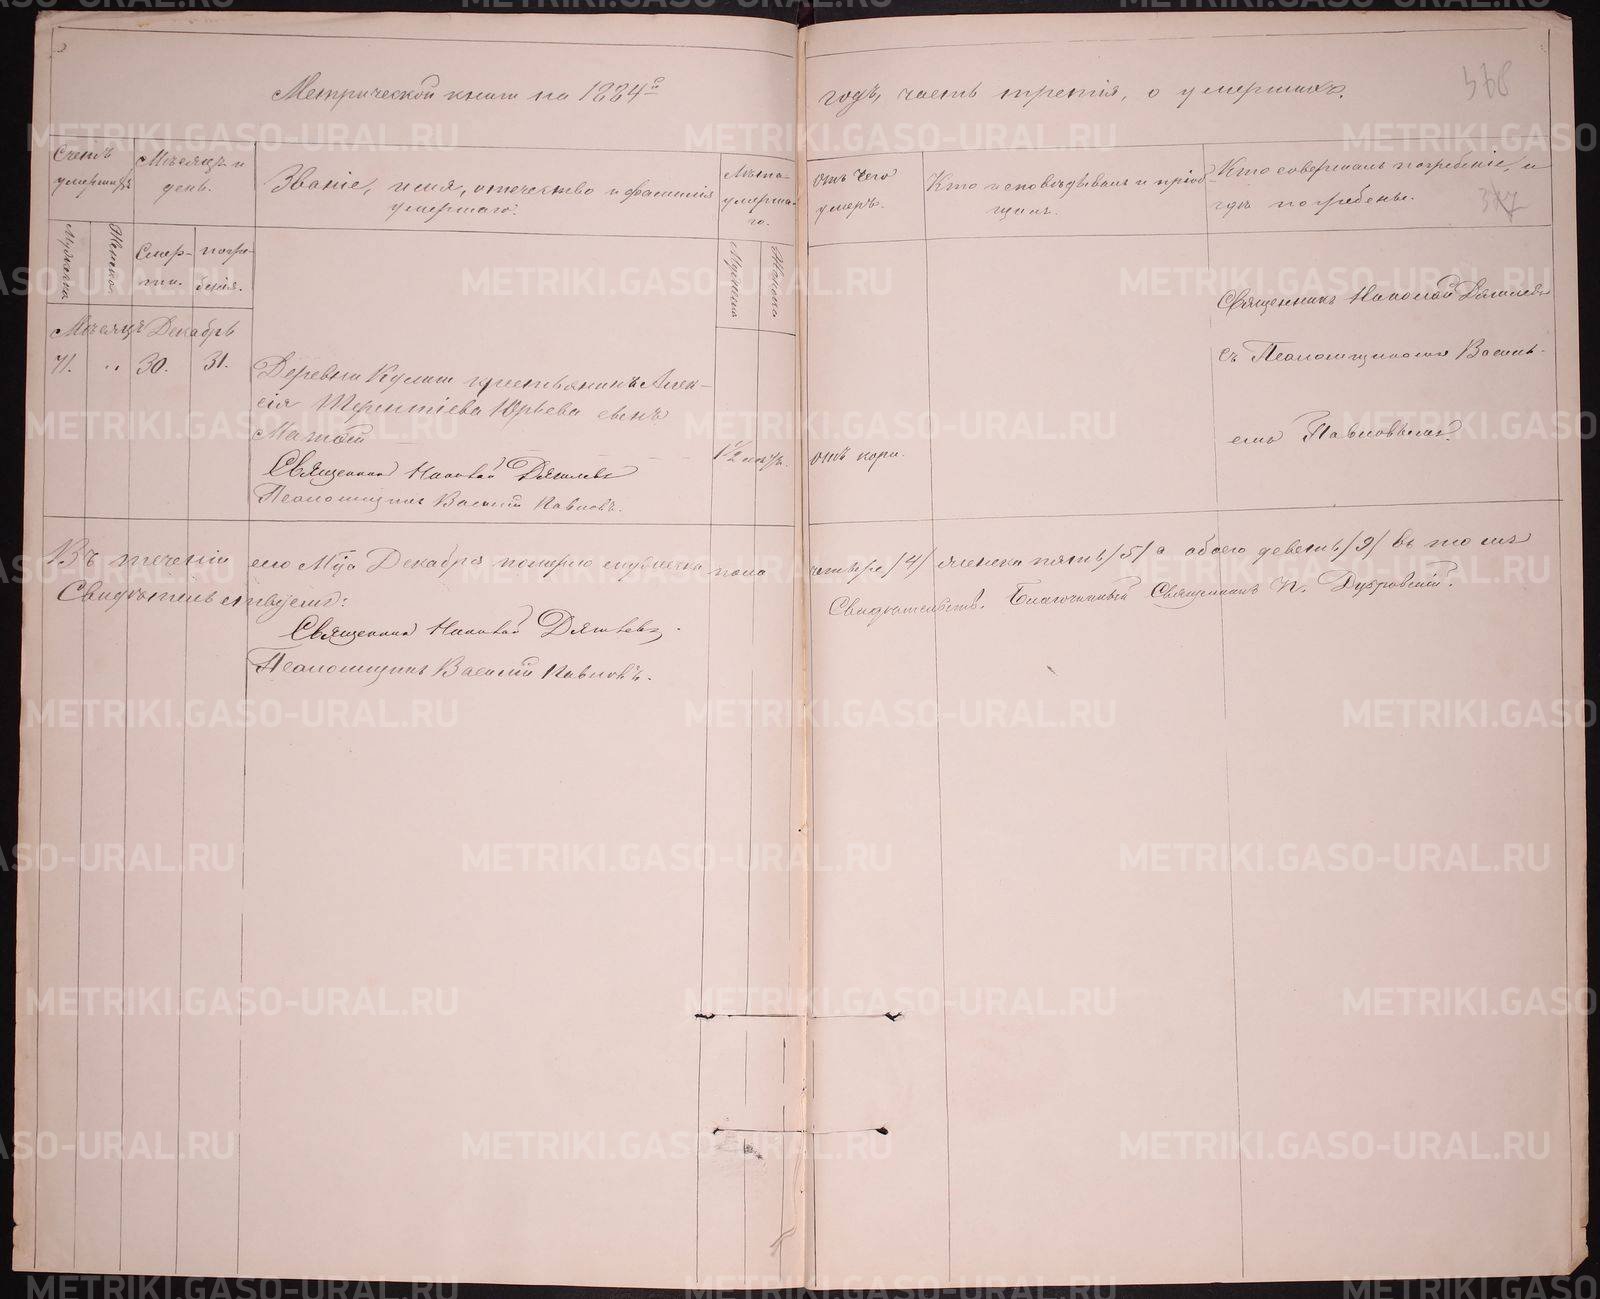 Метрической книги на 1884й годъ, часть третія, о умершихъ.
Счетъ умершихъ
Мѣсяцъ и день.
Званіе, имя, отчество и фамилія умершаго.
Лѣта умершаго.
отъ чего умеръ.
Кто исповѣдывалъ и пріобщилъ.
Кто совершалъ погребеніе, и гдѣ погребены.
Мужеска
Женска
Смерти.
погребенія.
Мужеска
Женска
Мѣсяцъ Декабрь
71.
30.
31.
Деревни
крестьянинъ Алек-
сія Терентіева Юрьева сынъ
отъ кори.
Священникъ Николай
съ Псаломщикомъ Василь-
емъ Павловымъ.
Священникъ Николай
Псаломщикъ Василій Павловъ.
Въ теченіи сего Мца Декабря померло мужеска пола четыре /4/ женска пять /5/ а обоего девять /9/ въ томъ
Свидѣтельствуемъ:
Священникъ Николай
Псаломщикъ Василій Павловъ.
Свидѣтельств. Благочинный Священникъ П. Дубровскій.
378
METRIKI.GASO-URAL.RU